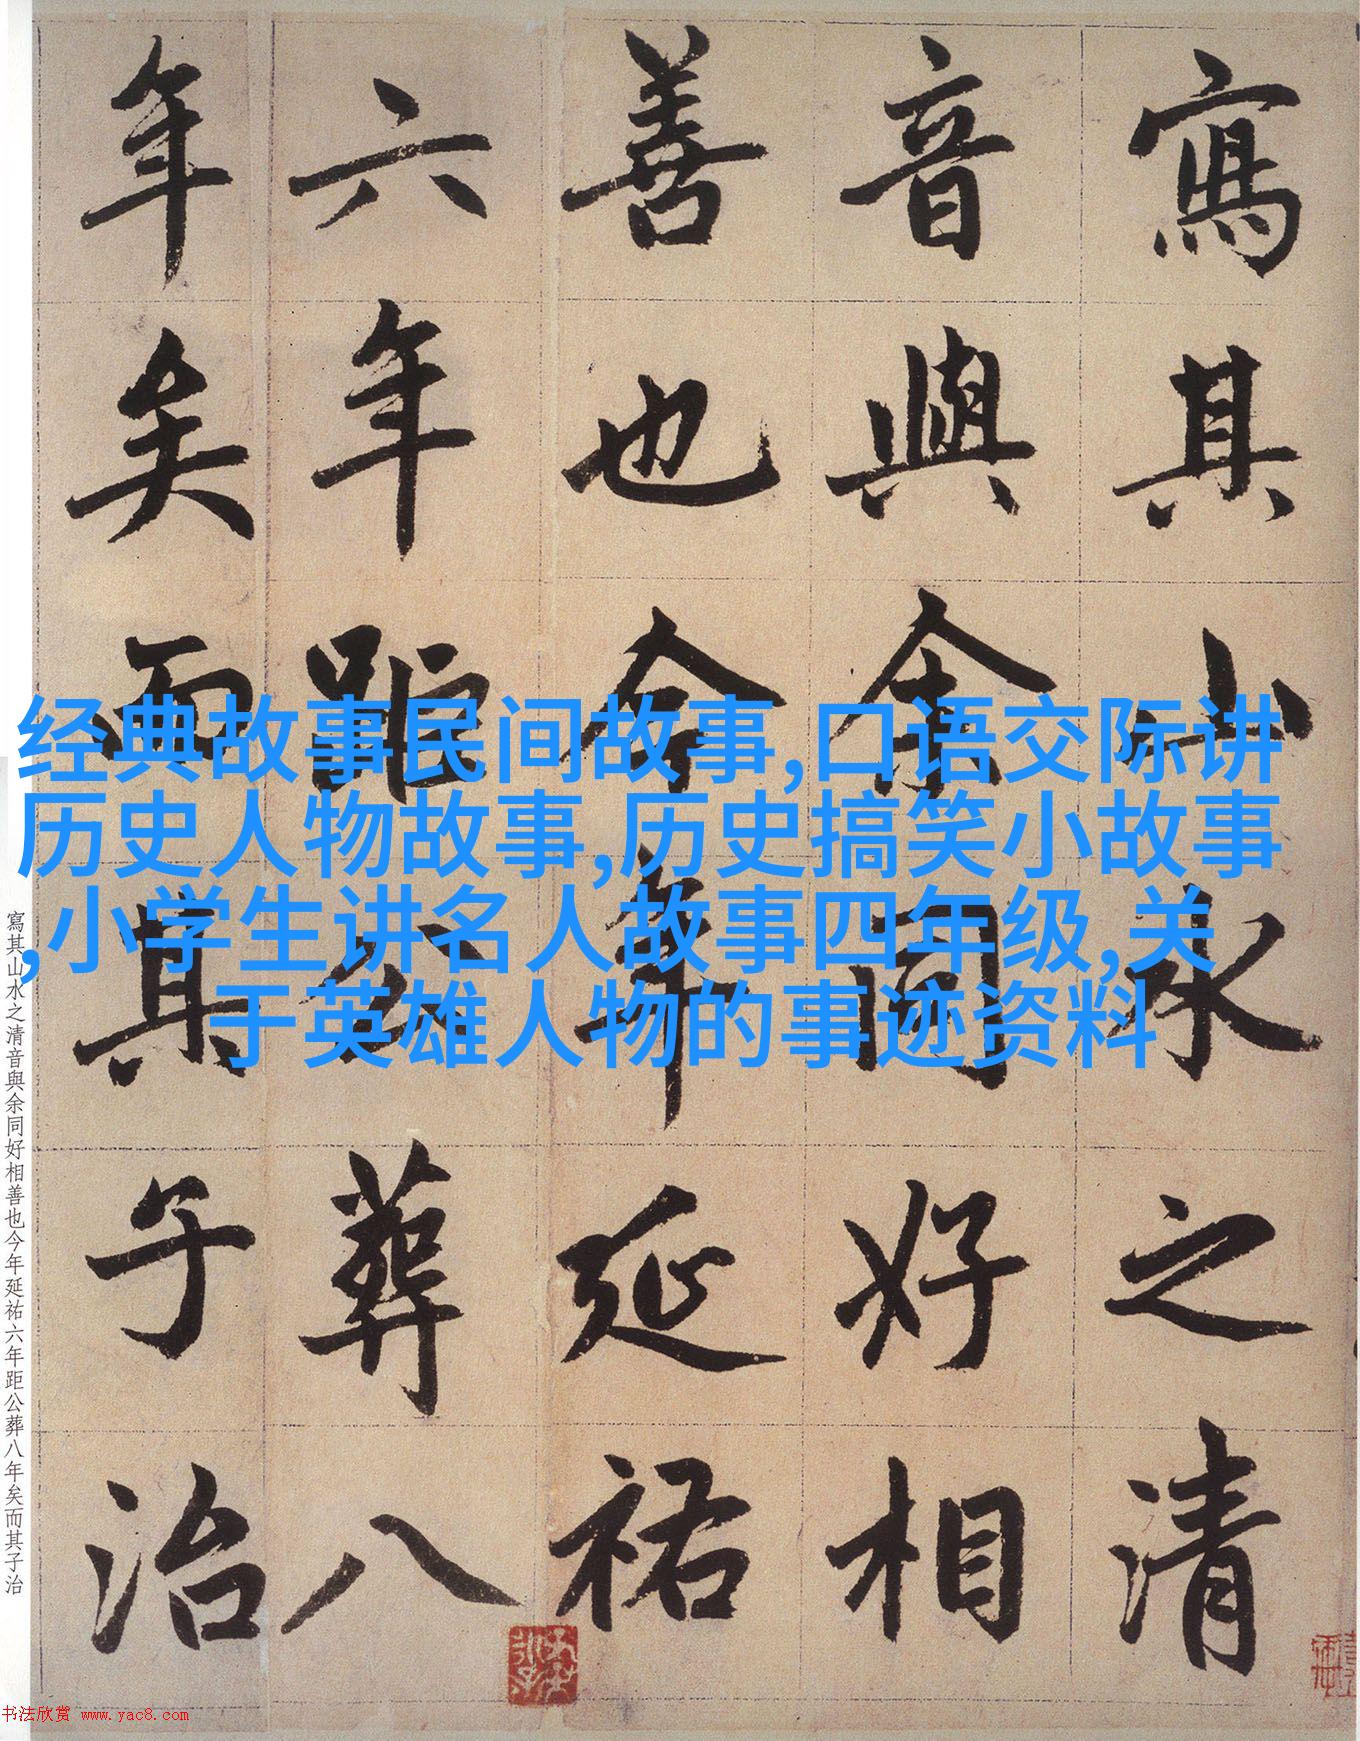 寫其山水之清
音與余同好相
善也今年延祐
六年距公葬八
年矣而其子治
经典故事民间故事,口语交际讲
历史人物故事,历史搞笑小故事
,小学生讲名人故事四年级,关
于英雄人物的事迹资料
寫其山水之清音與余同好相善也今年延祐六年距公葬八年矣而其子治
书法欣赏 www.yac8.com